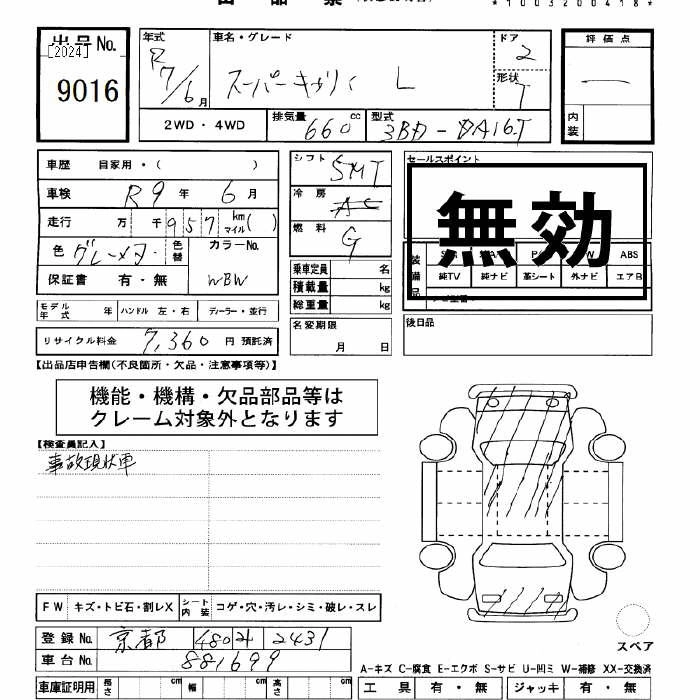 *1003200418*
出品No.
[2024]
9016
年式
R7/6月
車名・グレード
スーパーキャリイ L
ドア
2
形状
T
評価点
内装
2WD・4WD
排気量 660 cc
型式 3BD-DA16T
車歴 自家用・( )
車検 R9年 6月
走行 万 千957 km マイル( )
色 グレーメタ 色替
カラーNo.
WBW
保証書 有・無
モデル年式 年 ハンドル 左・右 ディーラー・並行
リサイクル料金 7,360 円 預託済
シフト 5MT
冷房 AC
燃料 G
乗車定員 名
積載量 kg
総重量 kg
名変期限
月 日
セールスポイント
無効
装備品
ABS
純TV 純ナビ 革シート 外ナビ エアB
後日品
【出品店申告欄(不良箇所・欠品・注意事項等)】
機能・機構・欠品部品等は
クレーム対象外となります
【検査員記入】
事故現状車
FW キズ・トビ石・割レX シート内装 コゲ・穴・汚レ・シミ・破レ・スレ
登録No. 京都 480 2431
車台No. 881699
車庫証明用 長さ cm 幅 cm 高さ cm
スペア
A-キズ C-腐食 E-エクボ S-サビ U-凹ミ W-補修 XX-交換済
工具 有・無 ジャッキ 有・無